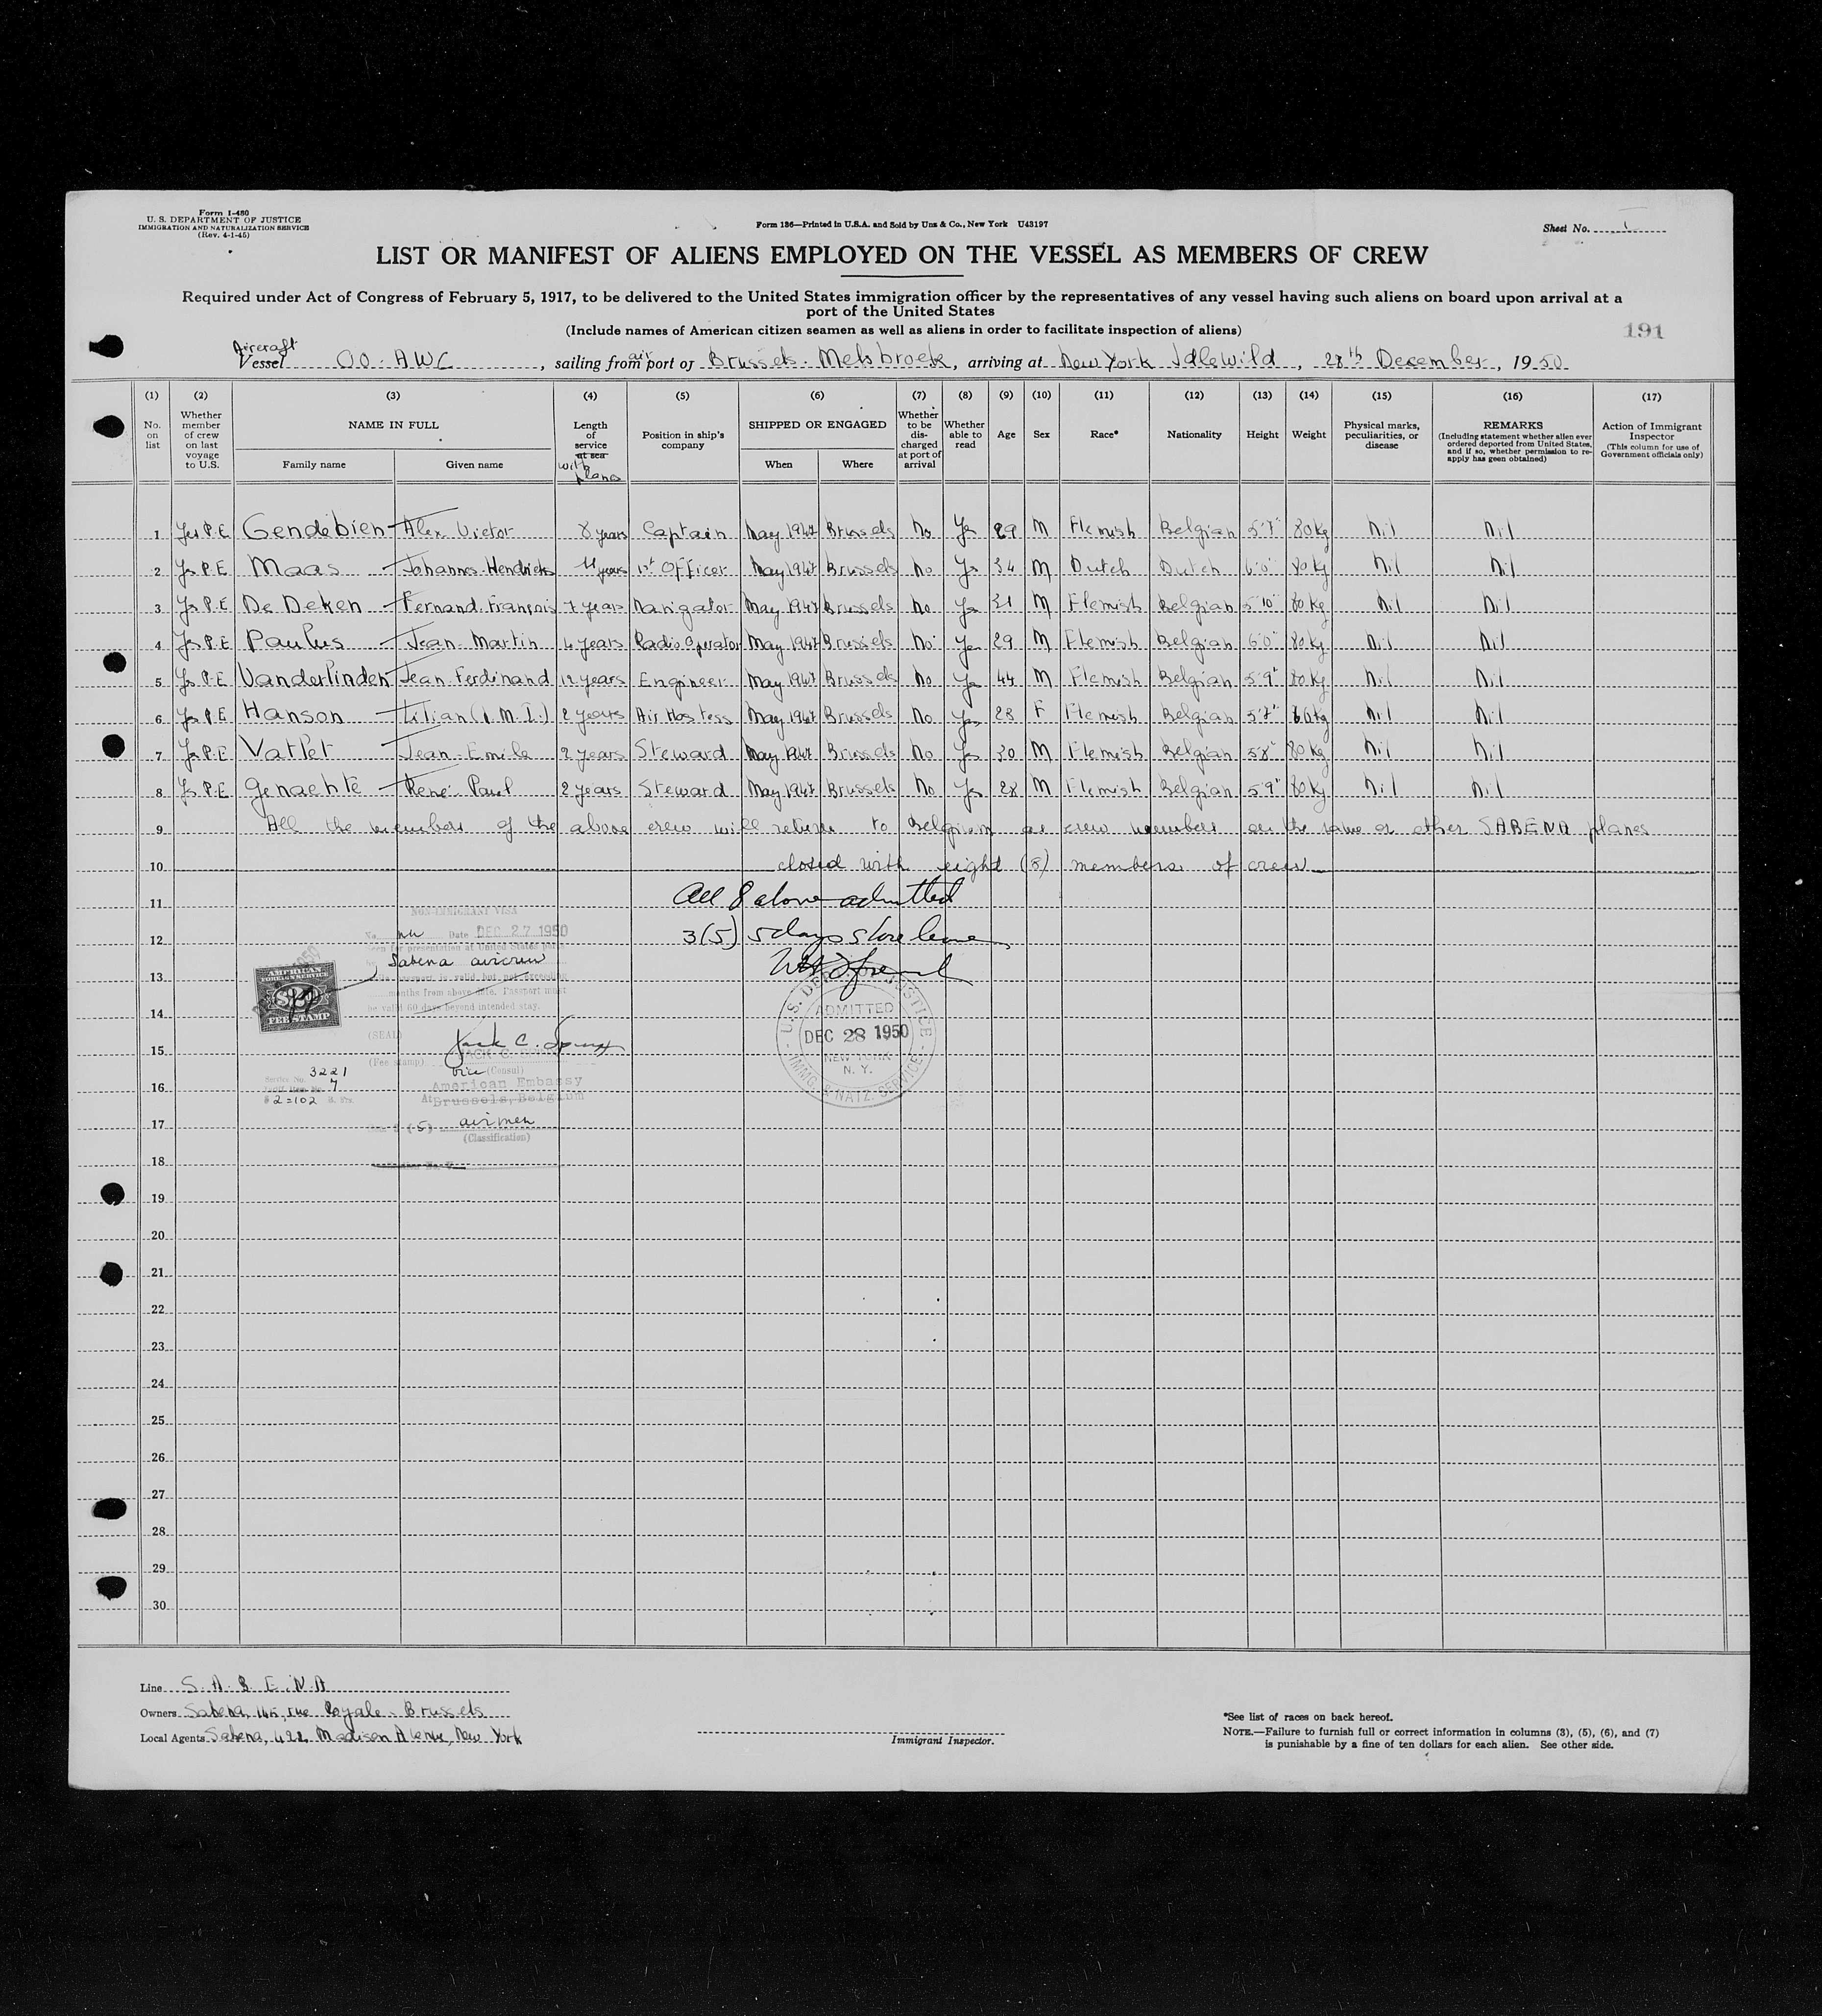 Form I-480
U. S. DEPARTMENT OF JUSTICE
IMMIGRATION AND NATURALIZATION SERVICE
(Rev. 4-1-45)
Form 136—Printed in U.S.A. and Sold by Unz & Co., New York U43197
Sheet No. 1
LIST OR MANIFEST OF ALIENS EMPLOYED ON THE VESSEL AS MEMBERS OF CREW
Required under Act of Congress of February 5, 1917, to be delivered to the United States immigration officer by the representatives of any vessel having such aliens on board upon arrival at a
port of the United States
(Include names of American citizen seamen as well as aliens in order to facilitate inspection of aliens)
191
Aircraft
Vessel OO-AWC, sailing from air port of Brussels-Melsbroek, arriving at New York Idlewild, 28th December, 1950
(1) (2) (3) (4) (5) (6) (7) (8) (9) (10) (11) (12) (13) (14) (15) (16) (17)
No. on list
Whether member of crew on last voyage to U.S.
NAME IN FULL
Family name Given name
Length of service at sea with plane
Position in ship's company
SHIPPED OR ENGAGED
When Where
Whether to be discharged at port of arrival
Whether able to read
Age
Sex
Race*
Nationality
Height
Weight
Physical marks, peculiarities, or disease
REMARKS
(Including statement whether alien ever ordered deported from United States, and if so, whether permission to re-apply has geen obtained)
Action of Immigrant Inspector
(This column for use of Government officials only)
1 Yes P.E Gendebien Alex Victor 8 years Captain May 1947 Brussels No Yes 29 M Flemish Belgian 5'7" 80 kg Nil Nil
2 Yes P.E Maas Johannes Hendricks 4 years 1st Officer May 1947 Brussels No Yes 34 M Dutch Dutch 6'0" 80 kg Nil Nil
3 Yes P.E De Deken Fernand François 7 years Navigator May 1947 Brussels No Yes 31 M Flemish Belgian 5'10" 80 kg Nil Nil
4 Yes P.E Paulus Jean Martin 4 years Radio Operator May 1947 Brussels No Yes 29 M Flemish Belgian 6'0" 80 kg Nil Nil
5 Yes P.E Vanderlinden Jean Ferdinand 12 years Engineer May 1947 Brussels No Yes 44 M Flemish Belgian 5'9" 80 kg Nil Nil
6 Yes P.E Hanson Lilian (I.M.I.) 2 years Air Hostess May 1947 Brussels No Yes 28 F Flemish Belgian 5'7" 60 kg Nil Nil
7 Yes P.E Vatlet Jean-Emile 2 years Steward May 1947 Brussels No Yes 30 M Flemish Belgian 5'8" 80 kg Nil Nil
8 Yes P.E Genachte René Paul 2 years Steward May 1947 Brussels No Yes 28 M Flemish Belgian 5'9" 80 kg Nil Nil
9 All the members of the above crew will return to Belgium as crew members on the same or other SABENA planes
10 closed with eight (8) members of crew
11 All 8 above admitted
12 3(5) 5 days shore leave
13
14
15
16
17
18
19
20
21
22
23
24
25
26
27
28
29
30
NON-IMMIGRANT VISA
No. Date DEC 27 1950
Seen for presentation at United States ports
Sabena aircrew
passport is valid but not exceeding
months from above date. Passport must
be valid 60 days beyond intended stay.
(SEAL)
(Fee stamp)
JACK C.
vice (Consul)
American Embassy
At Brussels, Belgium
(5) airmen
(Classification)
AMERICAN
FOREIGN SERVICE
$2
FEE STAMP
Service No. 3221
7
$ 2 = 102
U.S. DEPT. OF JUSTICE
ADMITTED
DEC 28 1950
NEW YORK
N. Y.
IMMIG. & NATZ. SERVICE
Line S.A.B.E.N.A
Owners Sabena, 145, rue Royale - Brussels
Local Agents Sabena, 422, Madison Avenue, New York
Immigrant Inspector.
*See list of races on back hereof.
NOTE.—Failure to furnish full or correct information in columns (3), (5), (6), and (7)
is punishable by a fine of ten dollars for each alien. See other side.